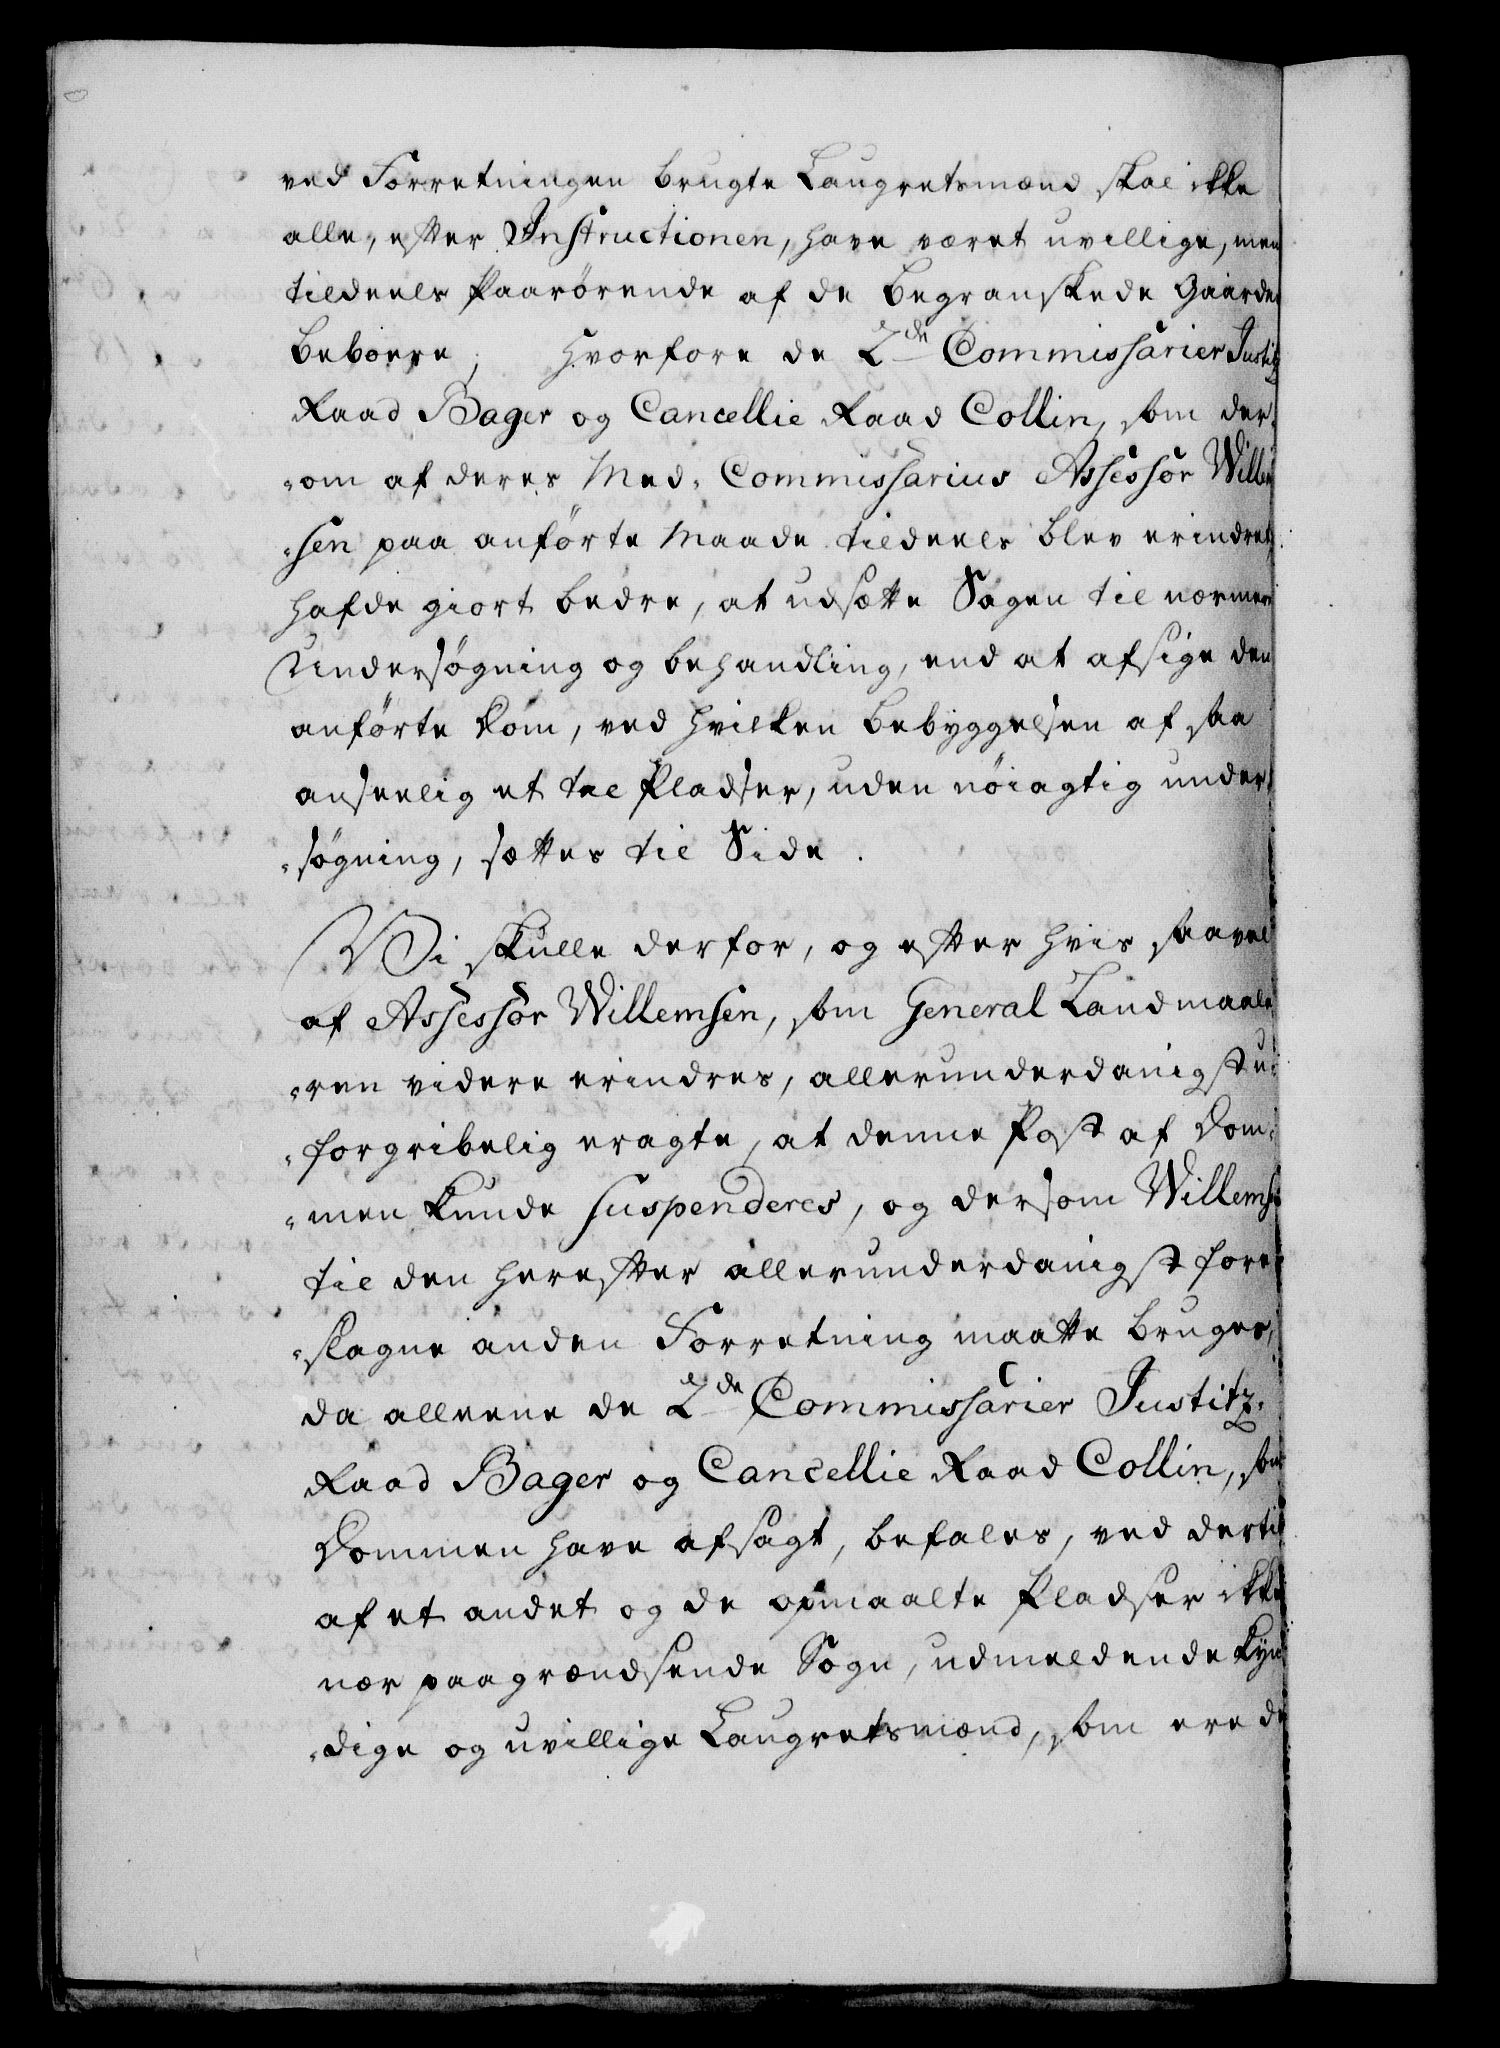 ved Forretningen brugte Laugretsmænd skal ikke
alle, efter Instructionen, have været uvillige, men
tildeels Paarørende af de begranskede Gaarde
beboere; hvorfore de 2de Commissarier Justitz
Raad Bager og Cancellie Raad Collin, som der„
„om af deres Med„ Commissarius Assessor Willem
„sen paa anførte Maade tildeels blev erindret,
hafde giort bedre, at udsætte Sagen til nærmere
Undersøgning og behandling, end at afsige den
anførte Dom, ved hvilken bebyggelsen af saa
anseelig et tal Pladser, uden nøiagtig under
„søgning, sættes til Side.
Vi skulle derfor, og efter hvis saavel
af Assessor Willemsen, som General Landmaale
„ren videre erindres, allerunderdanigst u„
„forgribelig eragte, at denne Post af Dom„
„men kunde suspenderes, og dersom Willemsen
til den herefter allerunderdanigst fore
„slagne anden Forretning maatte bruges,
da alleene de 2de Commissarier Justitz„
Raad Bager og Cancellie Raad Collin, som
Dommen have afsagt, befales, ved dertil
af et andet og de opmaalte Pladser ikke
nær paagrændsende Sogn, udmeldende kyn
„dige og uvillige Laugretsmænd, som ere de